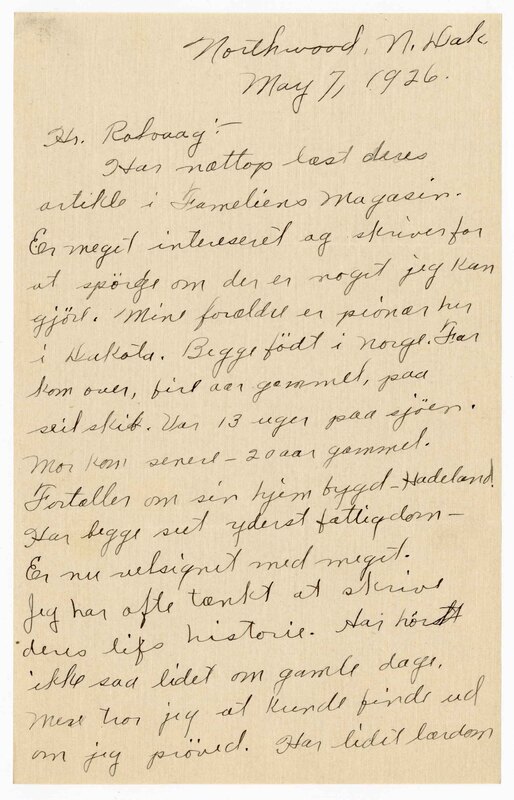 Northwood, N. Dak.
May 7, 1926.
Hr. Rolvaag:-
Har nættop læst deres
artikle i Fameliens Magasin.
Er meget intereseret og skriver for
at spörge om der er noget jeg kan
gjöre. Mine forældre er pionær her
i Dakota. Begge födt i Norge. Far
kom over, fire aar gammel, paa
seil skib. Var 13 uger paa sjöen.
Mor kom senere – 20 aar gammel.
Fortæller om sin hjem bygd – Hadeland.
Har begge seet yderst fattigdom –
Er nu velsignet med meget.
Jeg har ofte tænkt at skrive
deres lifs historie. Har hörst
ikke saa lidet om gamle dage.
Mere tror jeg at kunde finde ud
om jeg pröved. Har lidet lærdom